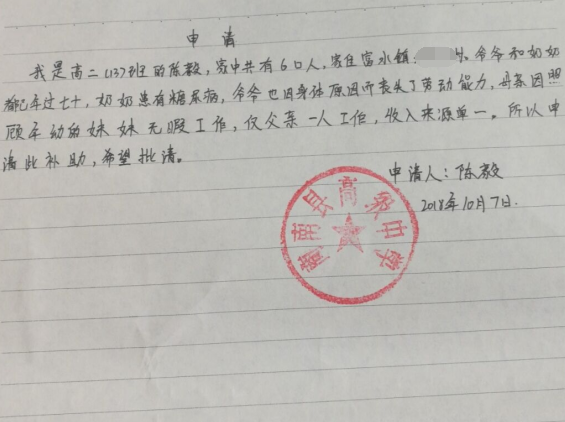 申请
我是高二(13)班的陈毅，家中共有6口人。家住富水镇，爷爷和奶奶
都已年过七十，奶奶患有糖尿病，爷爷也因身体原因而丧失了劳动能力，母亲因照
顾年幼的妹妹无暇工作，仅父亲一人工作，收入来源单一。所以申
请此补助，希望批请。
申请人：陈毅
2018年10月7日.
商南县高级中学